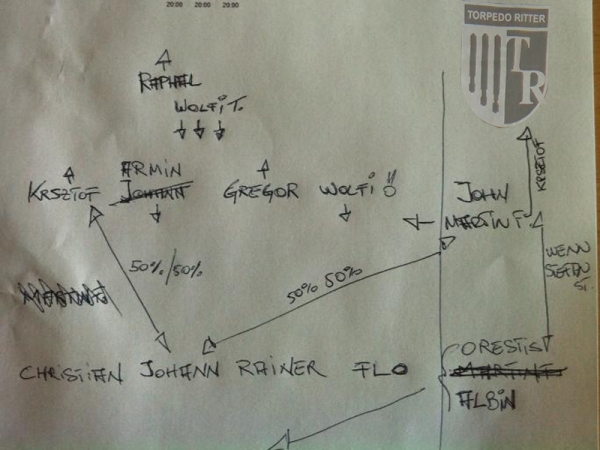 20:00 20:00 20:00
TORPEDO RITTER
TR
RAPHAEL
WOLFI T.
KRSZTOF ARMIN GREGOR WOLFI Ö
JOHANN
JOHN
MARTIN F.
KRSZTOF
50%/50%
50% 50%
WENN
CHRISTIAN JOHANN RAINER FLO
ORESTIS
MARTIN F
ALBIN